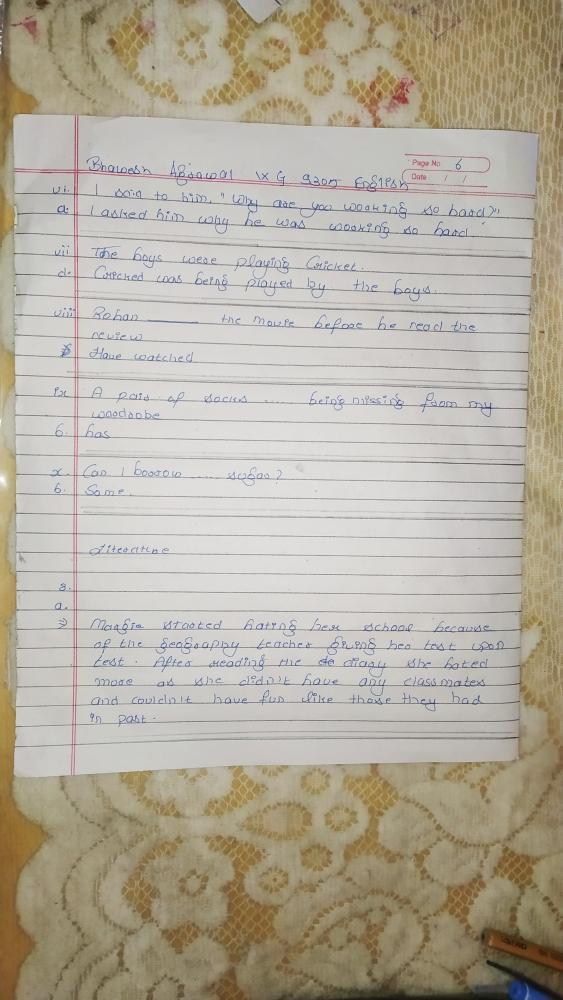 Page No. 6
Date / /
Bhawesh Agrawal IX G 9305 English
vi. I said to him, "Why are you working so hard?"
a. I asked him why he was working so hard.
vii The boys were playing Cricket.
d. Cricked was being played by the boys.
viii Rohan ______ the movie before he read the
review
Have watched
ix A pair of socks ..... being missing from my
wardrobe
b. has
x. Can I borrow ..... sugar?
b. Some.
Literature
8.
a.
⇒ Margie started hating her school because
of the geography teacher giving her test upon
test. After reading the diary she hated
more as she didn't have any classmates
and couldn't have fun like those they had
in past.